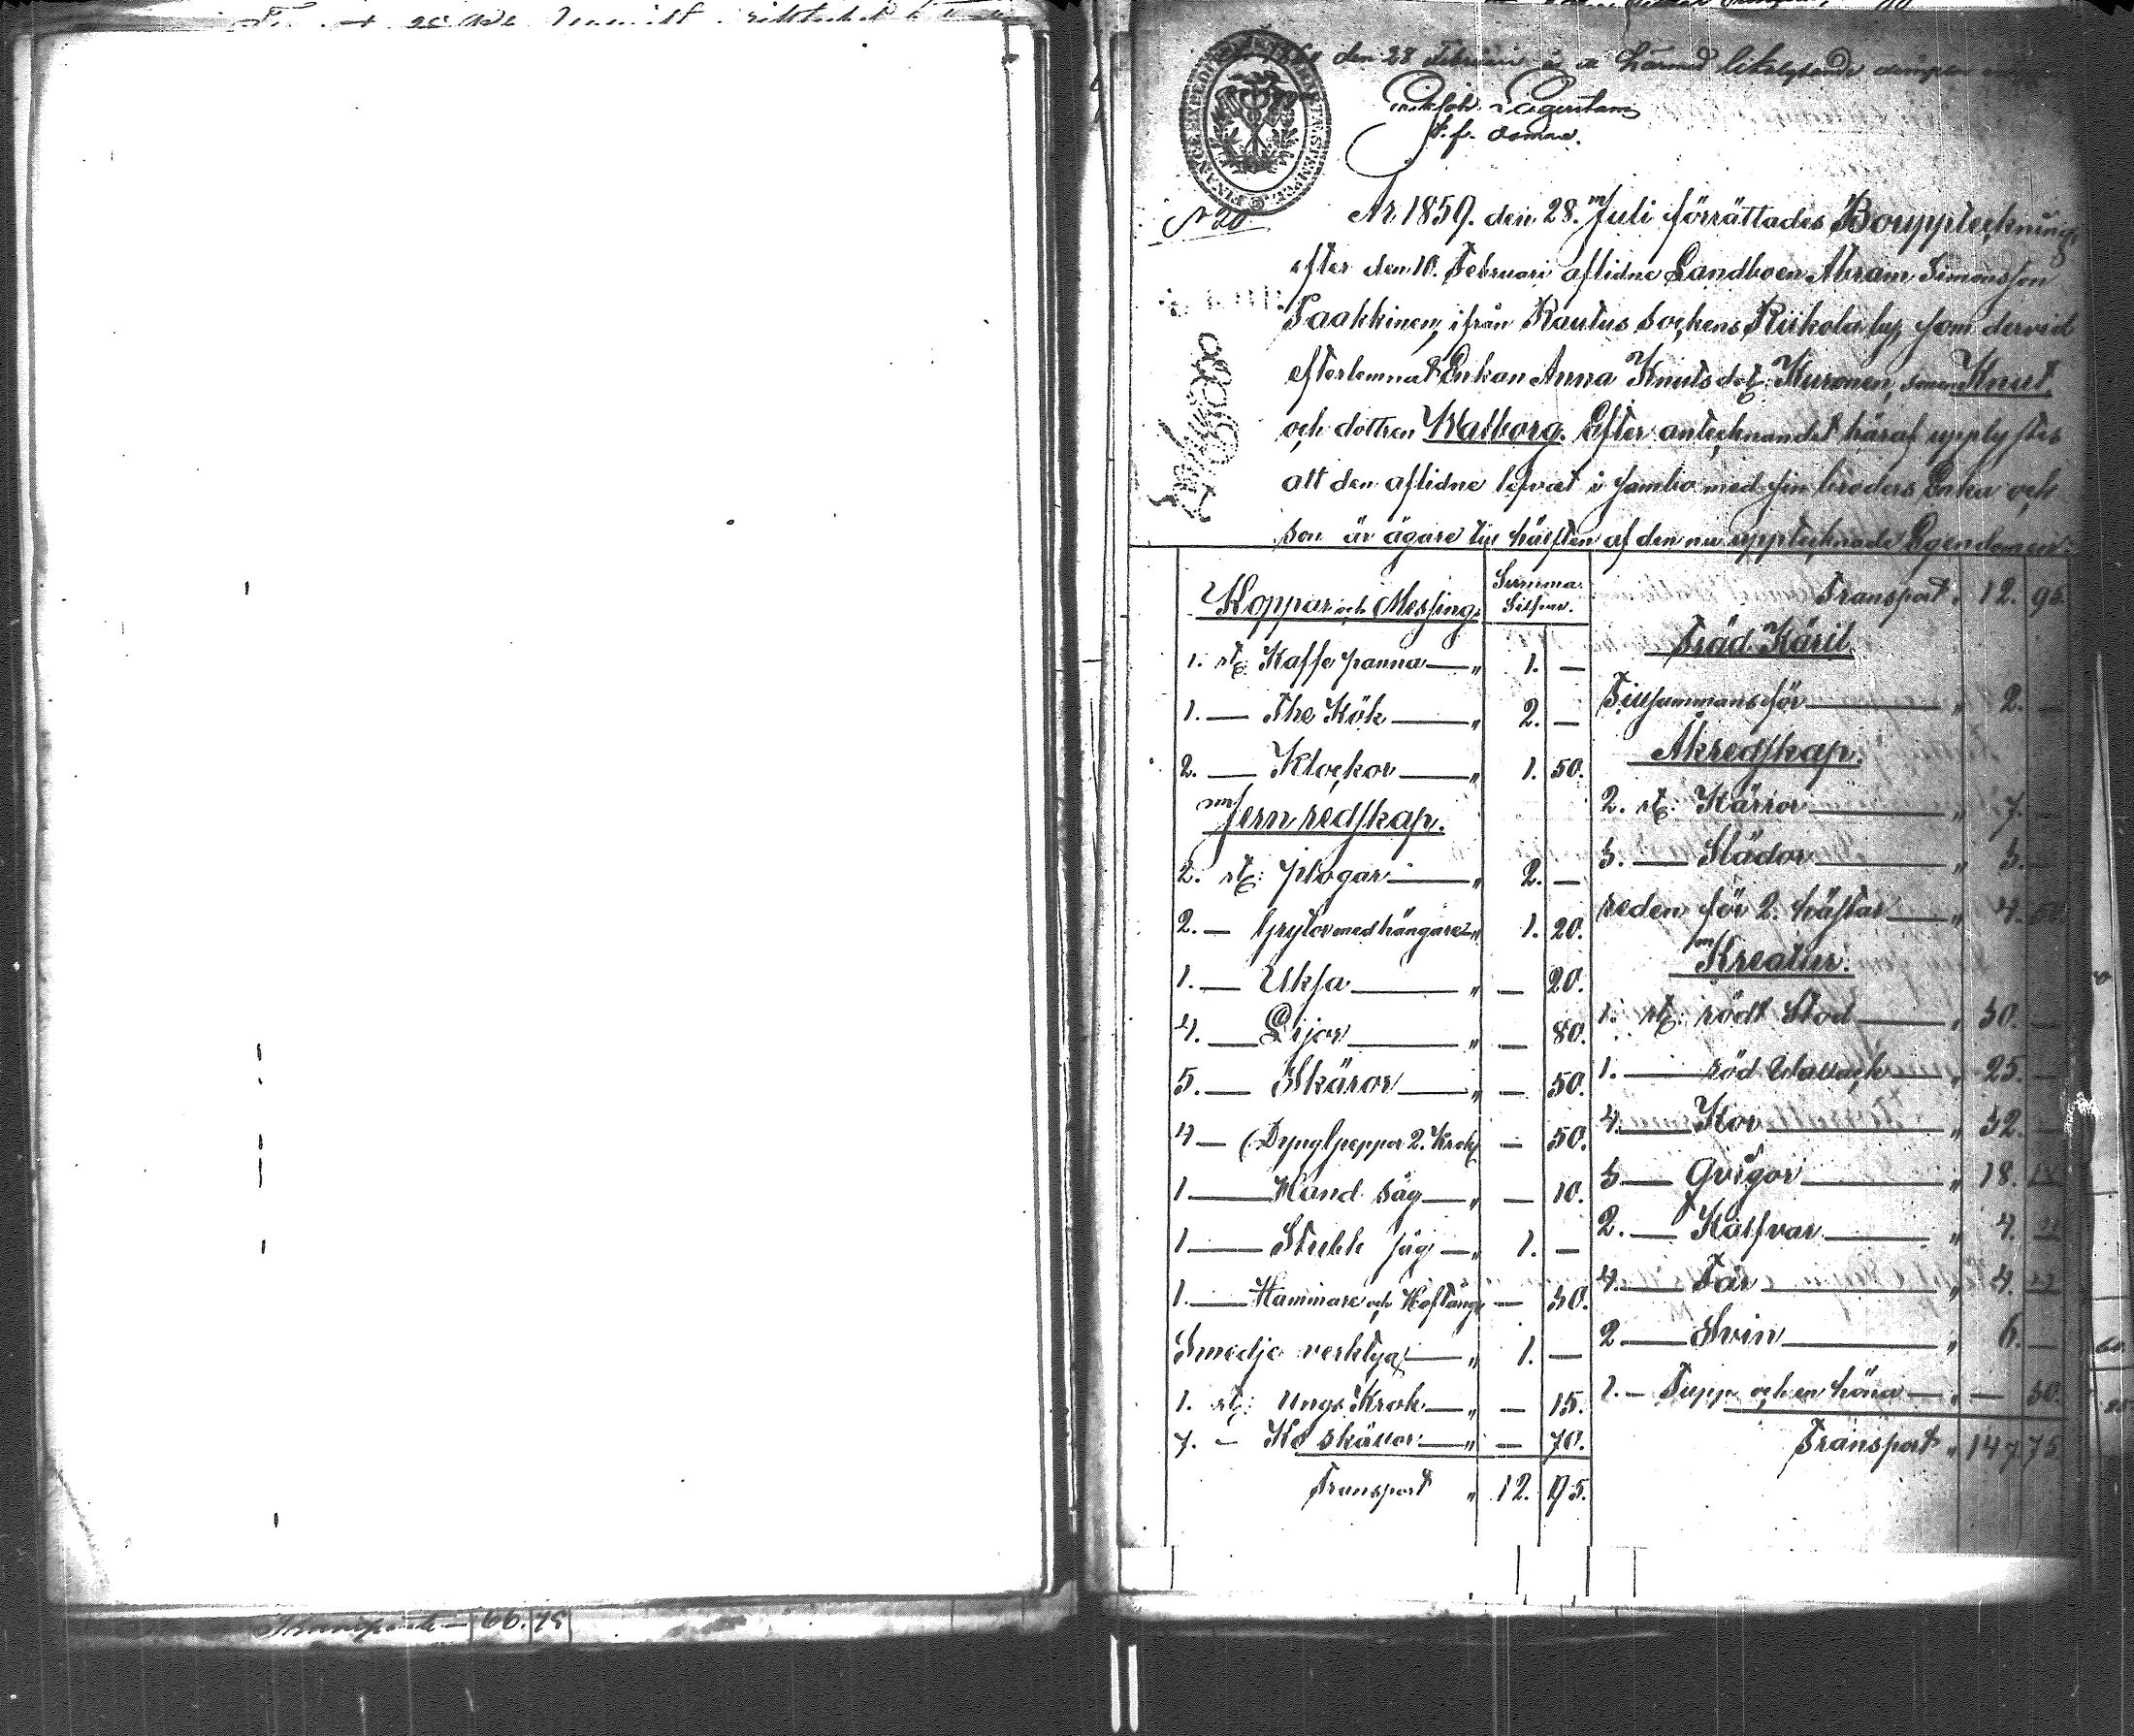 den 28 Februari härmed likalydande
t. f. domare.
N 20
År 1859. den 28. Juli förrättades Bouppteckning
efter den 10. Februari aflidne Landboen Abram Simonsson
Paakkinen, ifrån Rautus Sockens Riikola by, som dervid
efterlemnat Enkan Anna Knuts dotr Kuronen, sonen Knut
och dottren Walborg. Efter antecknandet häraf upplystes
att den aflidne lefvat i sambo med sin broders Enka och
son är ägare till hälften af den nu upptecknade Egendomen.
Koppar och Messing. Summa Silfver.
1. st: Kaffe panna — " 1. —
1. — The Kök — " 2. —
2. — Klockor — " 1. 50.
Jern redskap.
2. st: plogar — " 2. —
2. — Grytor med hängare — " 1. 20.
1. — Uksa — " — 20.
4. — Lijor — " — 80.
5. — Skäror — " — 50.
4 — Dyngl 2. Krok — 50.
1 — Hand såg — " — 10.
1 — Stubb såg — " 1. —
1. — Hammare och Hoftång — 30.
Smedje verktyg — " 1. —
1. st: Ungs Krok — " — 15.
7. — Ko skällor — " — 70.
Transport " 12. 95.
Transport " 12. 95.
Träd Käril.
Tillsammans för — " 2. —
Åkredskap.
2. st: Kärror — " 7. —
3. — Slädor — " 3. —
reden för 2. hästar — " 4. 50.
Kreatur.
1. st: rödt Stod — " 30. —
1. — röd Wallack — " 25. —
4. — Kor — " 32. —
3 — Qvigor — " 18.
2. — Kalfvar — " 4.
4. — Får — " 4.
2 — Svin — " 6. —
1. — Tupp och en höna — " — 30.
Transport " 147. 75.
66. 75